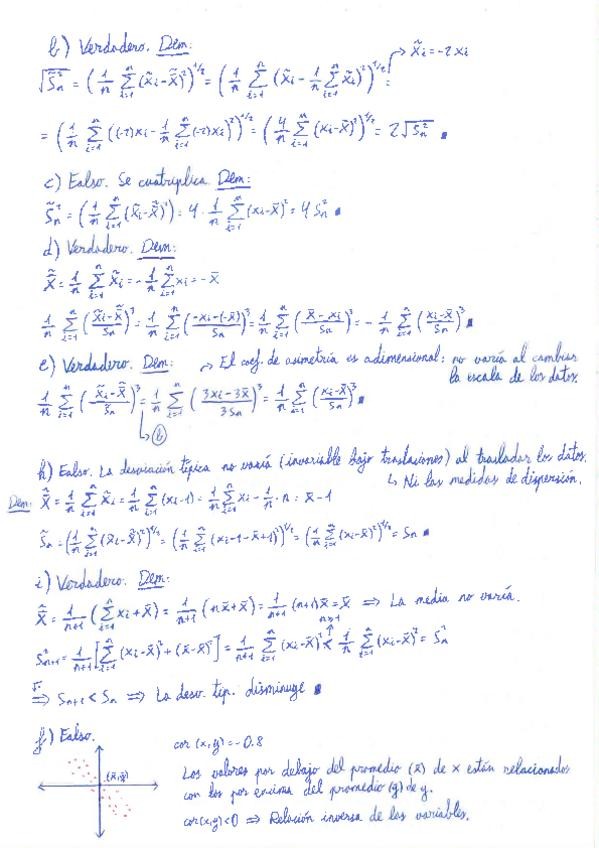 b) Verdadero. Dem:
→ x̃i = -2xi
√S̃n² = (1/n Σ_{i=1}^n (x̃i - x̃̄)²)^{1/2} = (1/n Σ_{i=1}^n (x̃i - 1/n Σ_{i=1}^n x̃i)²)^{1/2} =
= (1/n Σ_{i=1}^n ((-2)xi - 1/n Σ_{i=1}^n (-2)xi)²)^{1/2} = (4/n Σ_{i=1}^n (xi - x̄)²)^{1/2} = 2√Sn² ∎
c) Falso. Se cuatriplica. Dem:
S̃n² = (1/n Σ_{i=1}^n (x̃i - x̃̄)²) = 4 · 1/n Σ_{i=1}^n (xi - x̄)² = 4 Sn² ∎
d) Verdadero. Dem:
x̃̄ = 1/n Σ_{i=1}^n x̃i = - 1/n Σ_{i=1}^n xi = -x̄
1/n Σ_{i=1}^n ((x̃i - x̃̄)/Sn)³ = 1/n Σ_{i=1}^n ((-xi - (-x̄))/Sn)³ = 1/n Σ_{i=1}^n ((x̄ - xi)/Sn)³ = - 1/n Σ_{i=1}^n ((xi - x̄)/Sn)³ ∎
e) Verdadero. Dem: → El coef. de asimetría es adimensional: no varía al cambiar
la escala de los datos.
1/n Σ_{i=1}^n ((x̃i - x̃̄)/S̃n)³ = 1/n Σ_{i=1}^n ((3xi - 3x̄)/3Sn)³ = 1/n Σ_{i=1}^n ((xi - x̄)/Sn)³ ∎
↳ b
h) Falso. La desviación típica no varía (invariable bajo traslaciones) al trasladar los datos.
↳ Ni las medidas de dispersión.
Dem: x̃̄ = 1/n Σ_{i=1}^n x̃i = 1/n Σ_{i=1}^n (xi - 1) = 1/n Σ_{i=1}^n xi - 1/n · n = x̄ - 1
S̃n = (1/n Σ_{i=1}^n (x̃i - x̃̄)²)^{1/2} = (1/n Σ_{i=1}^n (xi - 1 - x̄ + 1)²)^{1/2} = (1/n Σ_{i=1}^n (xi - x̄)²)^{1/2} = Sn ∎
i) Verdadero. Dem:
x̃̄ = 1/(n+1) (Σ_{i=1}^n xi + x̄) = 1/(n+1) (n x̄ + x̄) = 1/(n+1) (n+1) x̄ = x̄ ⇒ La media no varía.
n≥1
S²n+1 = 1/(n+1) [Σ_{i=1}^n (xi - x̄)² + (x̄ - x̄)²] = 1/(n+1) Σ_{i=1}^n (xi - x̄)² < 1/n Σ_{i=1}^n (xi - x̄)² = Sn²
√· ⇒ Sn+1 < Sn ⇒ La desv. típ. disminuye ∎
f) Falso.
(x̄, ȳ)
cor (x, y) = -0.8
Los valores por debajo del promedio (x̄) de x están relacionados
con los por encima del promedio (ȳ) de y.
cor(x, y) < 0 ⇒ Relación inversa de las variables.